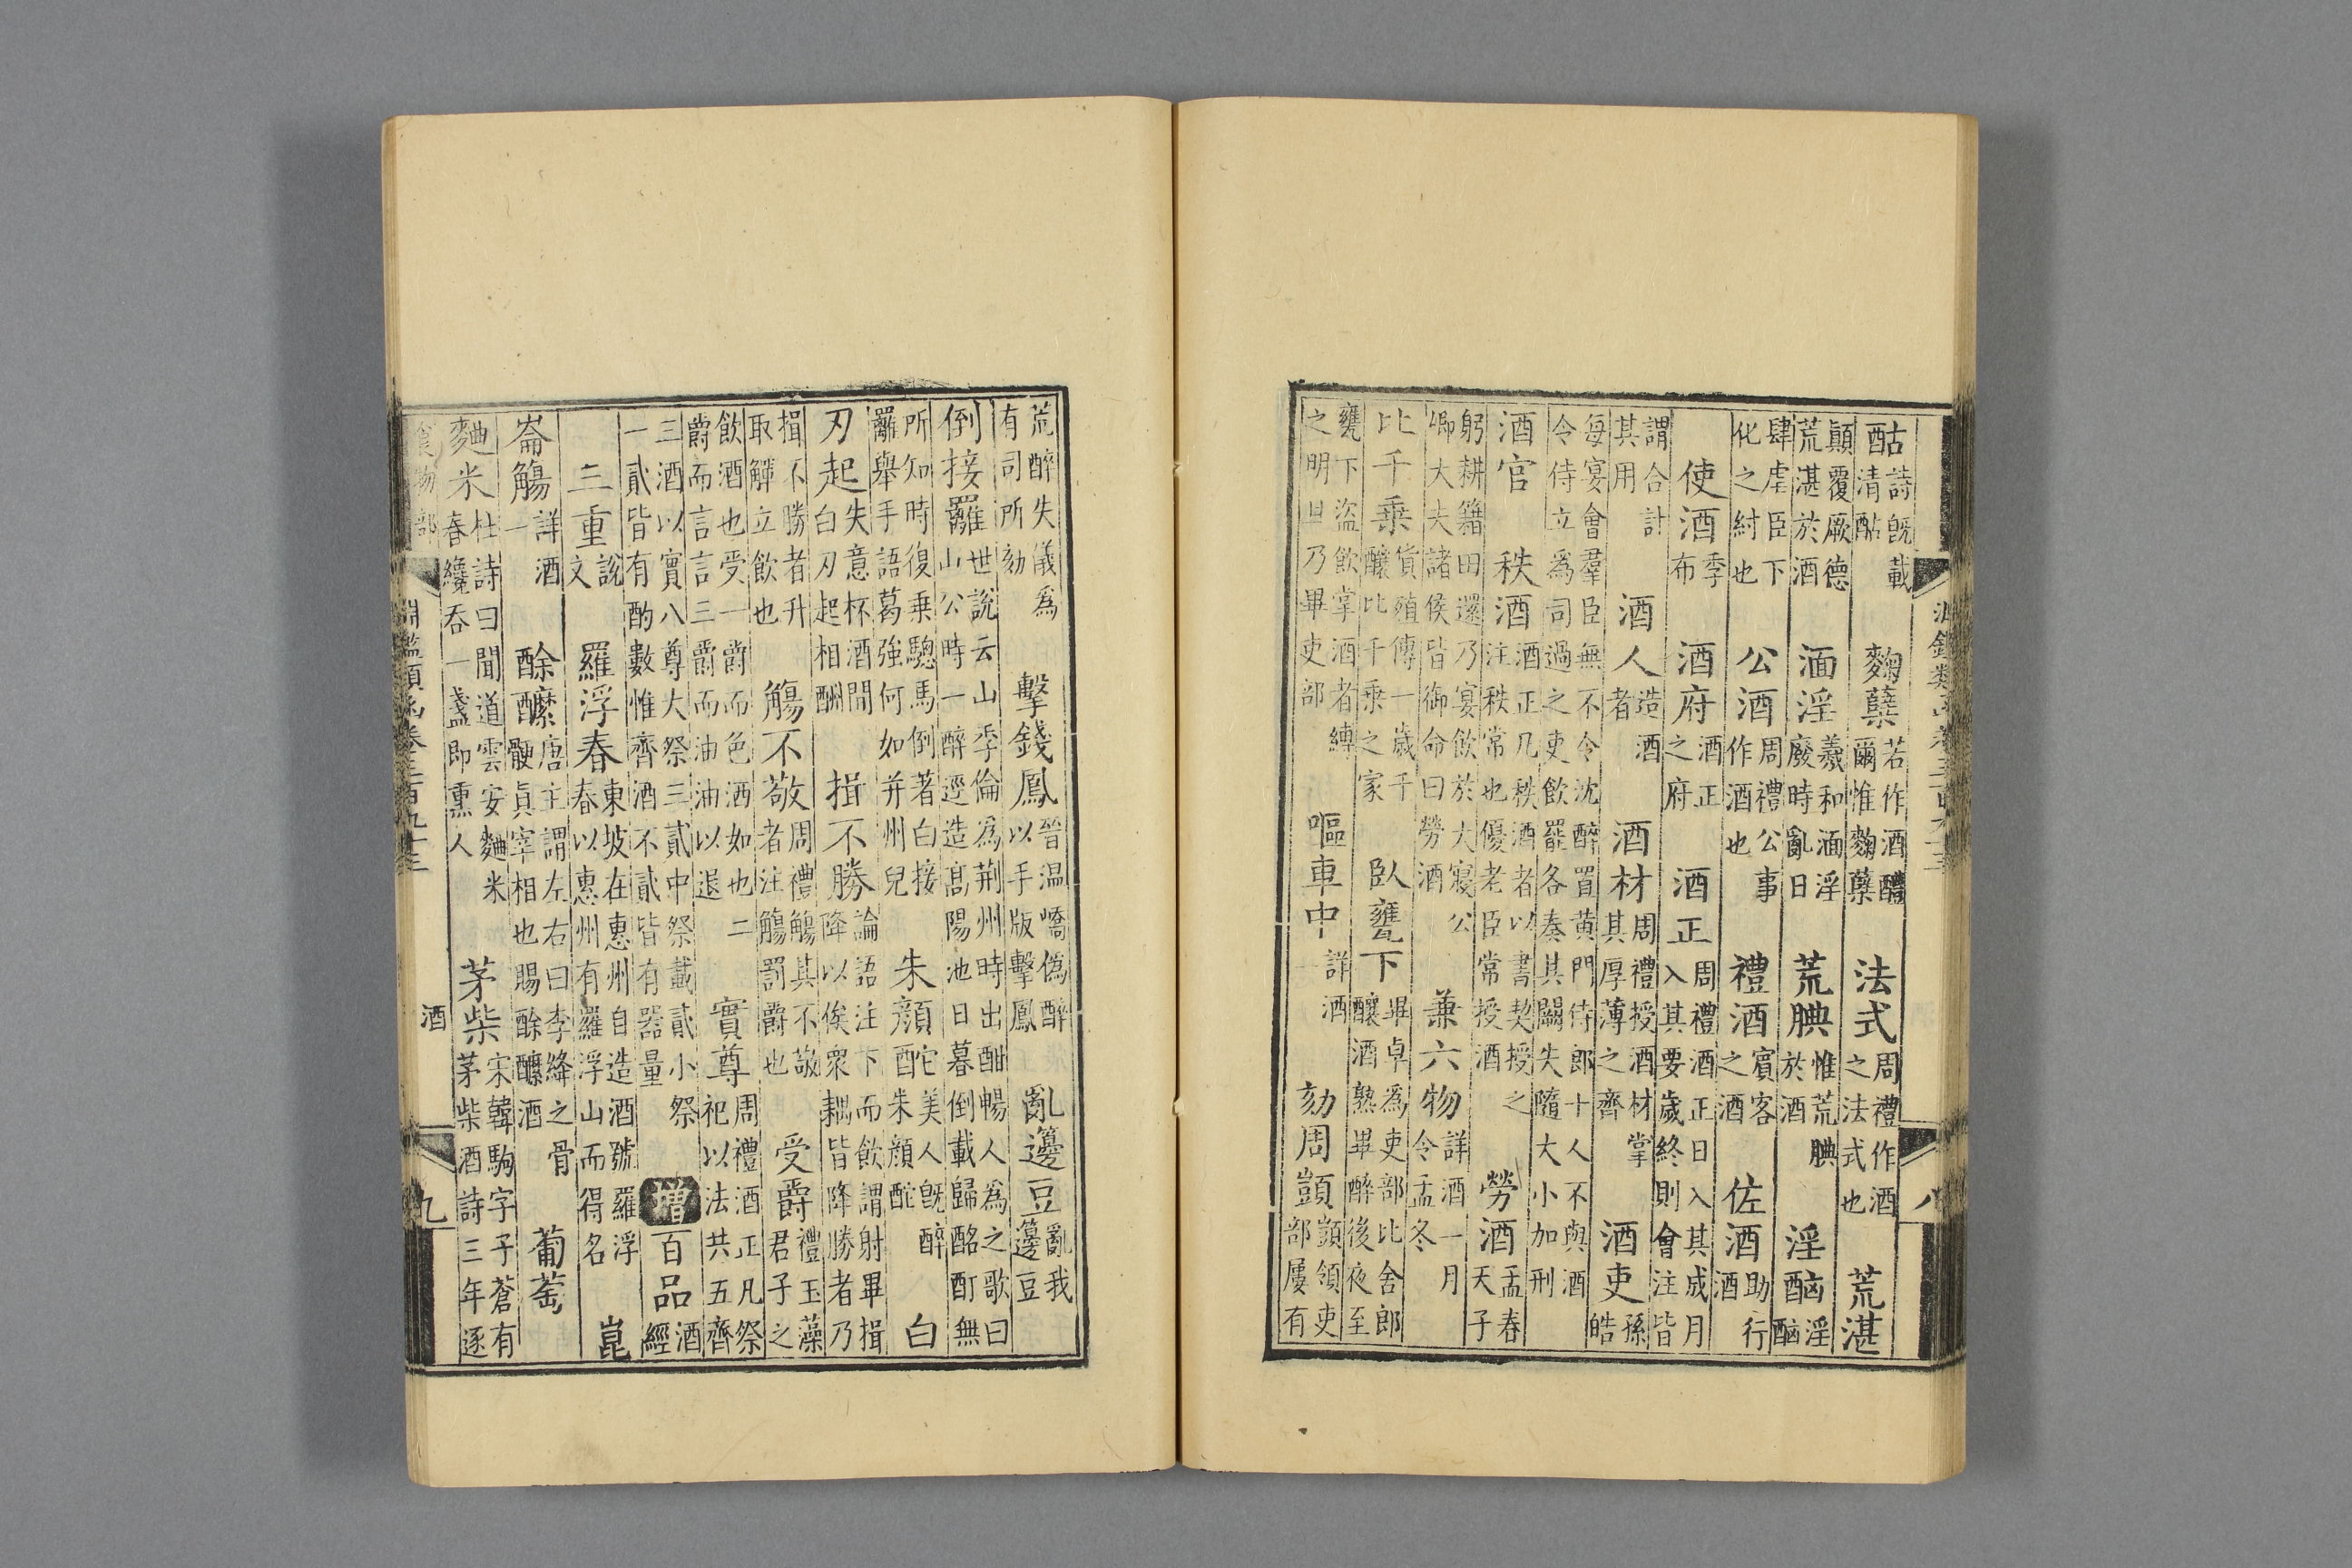 淵鑑類函卷三百九十三 八
酤 詩旣載清酤 麴糵 若作酒醴爾惟麴糵 法式 周禮作酒之法式也 荒湛
顛覆厥德荒湛於酒 湎淫 羲和湎淫廢時亂日 荒腆 惟荒腆於酒 淫酗 淫酗
肆虐臣下化之紂也 公酒 周禮公事作酒也 禮酒 賓客之酒 佐酒 助行酒
使酒 季布 酒府 酒正之府 酒正 周禮酒正日入其成月入其要歲終則會注皆
謂合計其用 酒人 造酒者 酒材 周禮授酒材掌其厚薄之齊 酒吏 孫皓
每宴會羣臣無不令沈醉置黃門侍郎十人不與酒令侍立爲司過之吏飲罷各奏其闕失隨大小加刑
酒官 秩酒 酒正凡秩酒者以書契授之注秩常也優老臣常授酒 勞酒 孟春天子
躬耕籍田還乃宴飲於大寢公卿大夫諸侯皆御命曰勞酒 兼六物 詳酒一月令孟冬
比千乘 貨殖傳一歲千釀比千乘之家 臥甕下 畢卓爲吏部比舍郎釀酒熟畢醉後夜至
甕下盜飲掌酒者縛之明旦乃畢吏部 嘔車中 詳酒一 劾周顗 顗領吏部屢有
荒醉失儀爲有司所劾 擊錢鳳 晉温嶠僞醉以手版擊鳳 亂籩豆 亂我籩豆
倒接䍦 世說云山季倫爲荆州時出酣暢人爲之歌曰山公時一醉逕造髙陽池日暮倒載歸酩酊無
所知時復乗驄馬倒著白接䍦舉手語葛強何如并州兒 朱顏酡 美人旣醉朱顏酡 白
刃起 失意杯酒間白刃起相酬 揖不勝 論語注下而飲謂射畢揖降以俟衆耦皆降勝者乃
揖不勝者升取觶立飲也 觴不敬 周禮觴其不敬者注觴罰爵也 受爵 禮玉藻君子之
飲酒也受一爵而色洒如也二爵而言言三爵而油油以退 實尊 周禮酒正凡祭祀以法共五齊
三酒以實八尊大祭三貳中祭載貳小祭一貳皆有酌數惟齊酒不貳皆有器量 增 百品 酒經
三重 說文 羅浮春 東坡在惠州自造酒號羅浮春以惠州有羅浮山而得名 崑
崙觴 詳酒一 酴醾 唐主謂左右曰李絳之骨骾真宰相也賜酴醾酒 葡萄
麯米 杜詩曰聞道雲安麯米春纔吞一盞即熏人 茅柴 宋韓駒字子蒼有茅柴酒詩三年逐
食物部 淵鑑類函卷三百九十三 酒 九